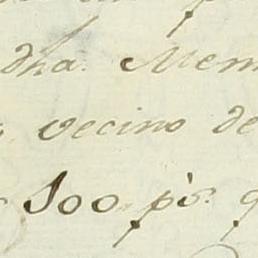 dha. Mem
vecino de
100 p.s q